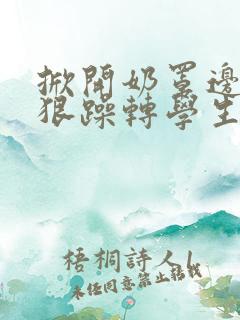 掀開奶罩邊
狠躁轉學生
梧桐詩人l
未经同意禁止转载